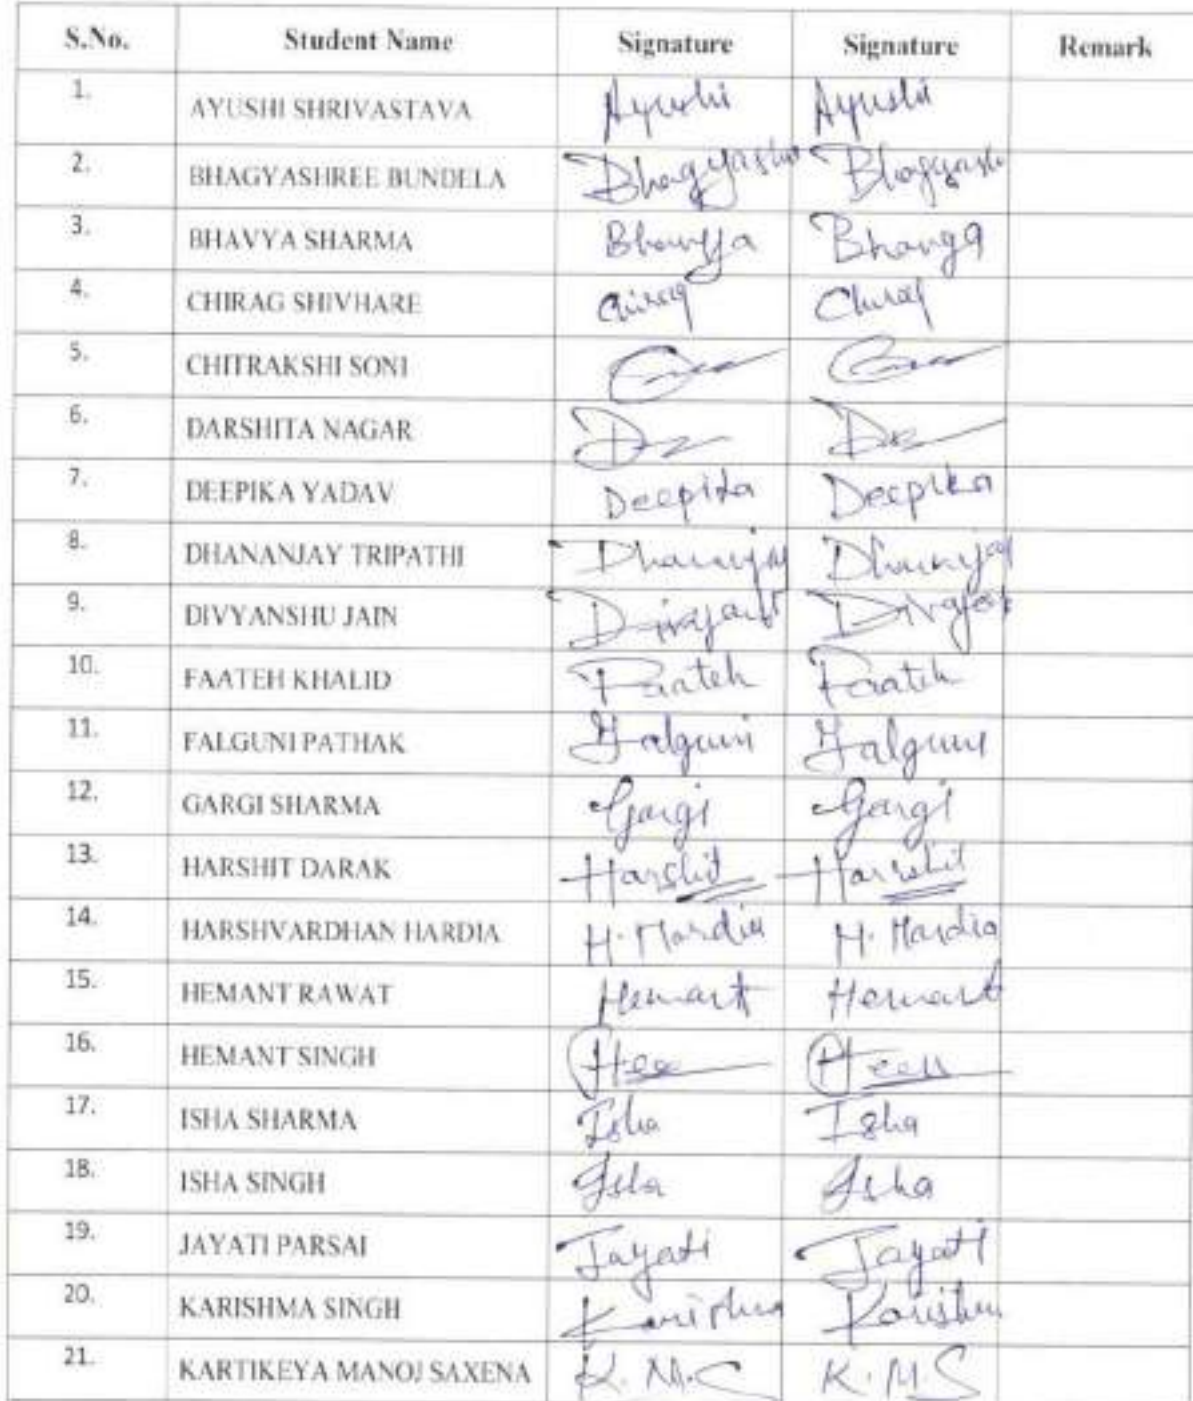 S.No. Student Name Signature Signature Remark
1. AYUSHI SHRIVASTAVA Ayushi Ayushi
2. BHAGYASHREE BUNDELA Bhagyashr Bhagyash
3. BHAVYA SHARMA Bhavya Bhavya
4. CHIRAG SHIVHARE Chirag Chirag
5. CHITRAKSHI SONI
6. DARSHITA NAGAR
7. DEEPIKA YADAV Deepika Deepika
8. DHANANJAY TRIPATHI Dhananjay Dhananjay
9. DIVYANSHU JAIN
10. FAATEH KHALID Faateh Faateh
11. FALGUNI PATHAK Falguni Falguni
12. GARGI SHARMA Gargi Gargi
13. HARSHIT DARAK Harshit Harshit
14. HARSHVARDHAN HARDIA H. Hardia H. Hardia
15. HEMANT RAWAT Hemant Hemant
16. HEMANT SINGH
17. ISHA SHARMA Isha Isha
18. ISHA SINGH Isha Isha
19. JAYATI PARSAI Jayati Jayati
20. KARISHMA SINGH Karishma
21. KARTIKEYA MANOJ SAXENA K.M.S K.M.S